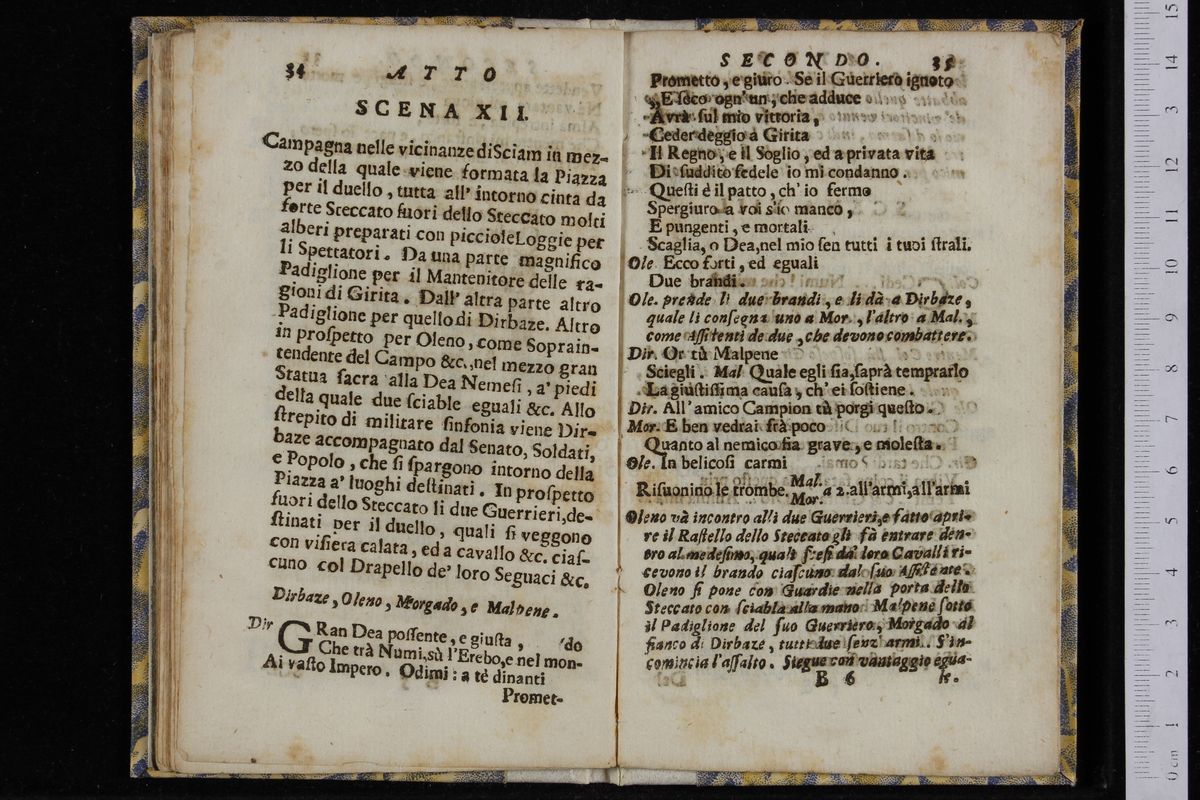 34 ATTO
SCENA XII.
Campagna nelle vicinanze di Sciam in mez-
zo della quale viene formata la Piazza
per il duello, tutta all' intorno cinta da
forte Steccato fuori dello Steccato molti
alberi preparati con picciole Loggie per
li Spettatori. Da una parte magnifico
Padiglione per il Mantenitore delle ra-
gioni di Girita. Dall' altra parte altro
Padiglione per quello di Dirbaze. Altro
in proſpetto per Oleno, come Soprain-
tendente del Campo &c., nel mezzo gran
Statua ſacra alla Dea Nemeſi, a' piedi
della quale due ſciable eguali &c. Allo
ſtrepito di militare ſinfonia viene Dir-
baze accompagnato dal Senato, Soldati,
e Popolo, che ſi ſpargono intorno della
Piazza a' luoghi deſtinati. In proſpetto
fuori dello Steccato li due Guerrieri, de-
ſtinati per il duello, quali ſi veggono
con viſiera calata, ed a cavallo &c. ciaſ-
cuno col Drapello de' loro Seguaci &c.
Dirbaze, Oleno, Morgado, e Malpene.
Dir GRan Dea poſſente, e giuſta, 'do
Che trà Numi, sù l'Erebo, e nel mon-
Ai vaſto Impero. Odimi: a tè dinanti
Promet-
SECONDO. 35
Prometto, e giuro. Se il Guerriero ignoto
„E ſeco ogn' un, che adduce
Avrà ſul mio vittoria,
Ceder deggio a Girita
Il Regno, e il Soglio, ed a privata vita
Di ſuddito fedele io mi condanno.
Queſti è il patto, ch' io fermo
Spergiuro a voi s'io manco,
E pungenti, e mortali
Scaglia, o Dea, nel mio ſen tutti i tuoi ſtrali.
Ole Ecco forti, ed eguali
Due brandi.
Ole. prende li due brandi, e li dà a Dirbaze,
quale li conſegna uno a Mor., l'altro a Mal.,
come Aſſiſtenti de due, che devono combattere.
Dir. Or tù Malpene
Sciegli. Mal Quale egli ſia, ſaprà temprarlo
La giuſtiſſima cauſa, ch' ei ſoſtiene.
Dir. All' amico Campion tù porgi queſto.
Mor. E ben vedrai frà poco
Quanto al nemico ſia grave, e moleſta.
Ole. In belicoſi carmi
Riſuonino le trombe. Mal. Mor. a 2. all'armi, all'armi
Oleno và incontro alli due Guerrieri, e fatto apri-
re il Raſtello dello Steccato gli fà entrare den-
tro al medeſimo, quali ſceſi da loro Cavalli ri-
cevono il brando ciaſcuno dal ſuo Aſſiſtente.
Oleno ſi pone con Guardie nella porta dello
Steccato con ſciabla alla mano Malpene ſotto
il Padiglione del ſuo Guerriero, Morgado al
fianco di Dirbaze, tutti due ſenz' armi. S'in-
comincia l'aſſalto. Siegue con vantaggio egua-
B 6 le.